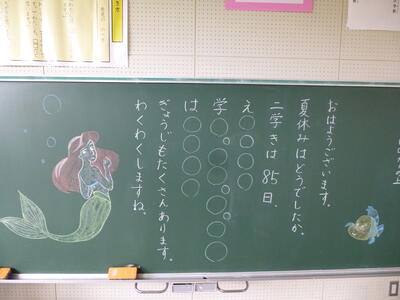 おはようございます。
夏休みはどうでしたか。
二学きは85日、
え○○○○
学○○○○○○○○○○
は○○○○
ぎょうじもたくさんあります。
わくわくしますね。